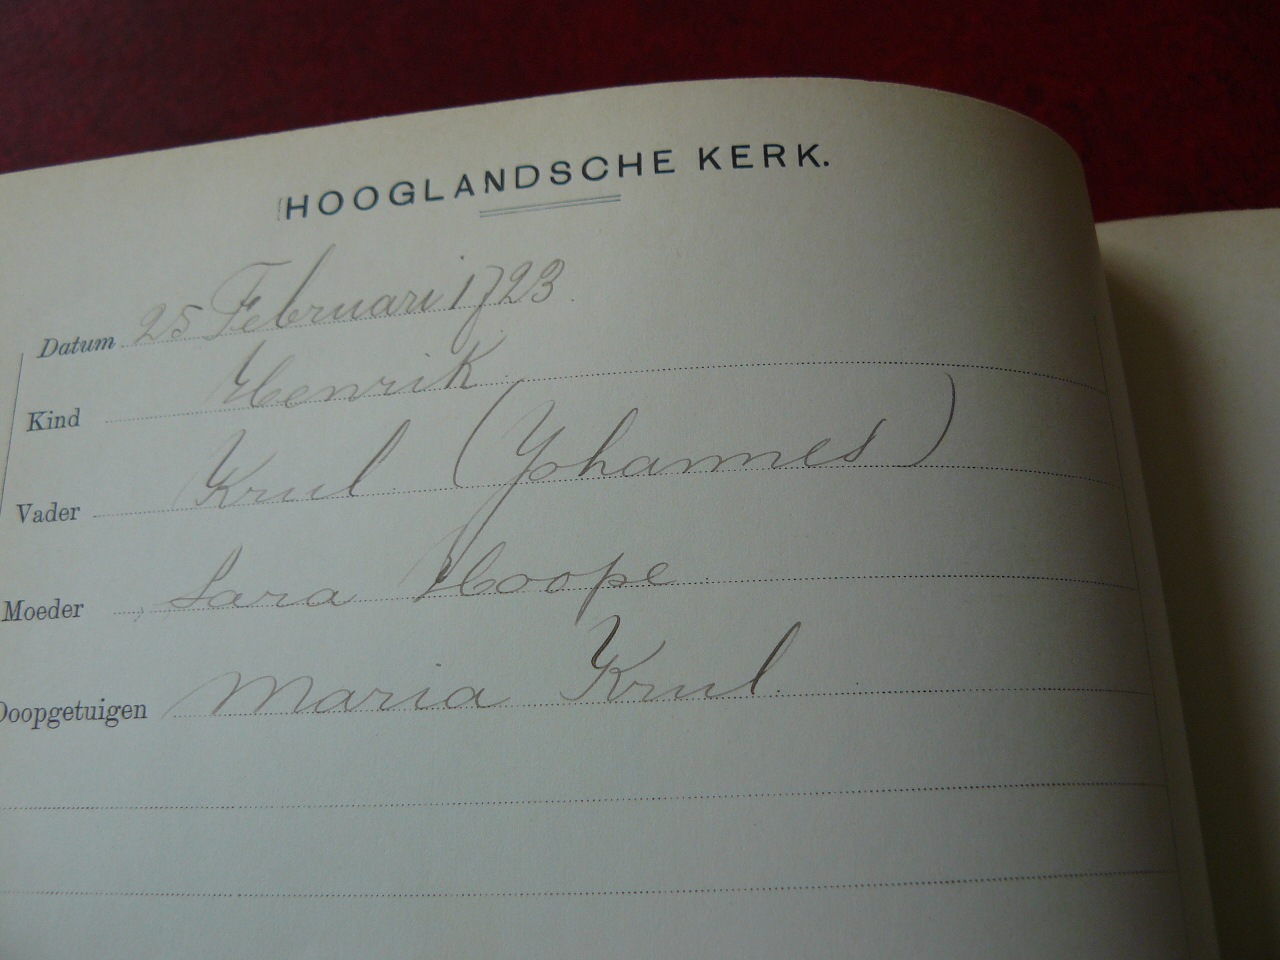 HOOGLANDSCHE KERK.
Datum 25 Februari 1723
Kind Henrik
Vader Krul (Yohannes)
Moeder Sara Hoope
Doopgetuigen Maria Krul.